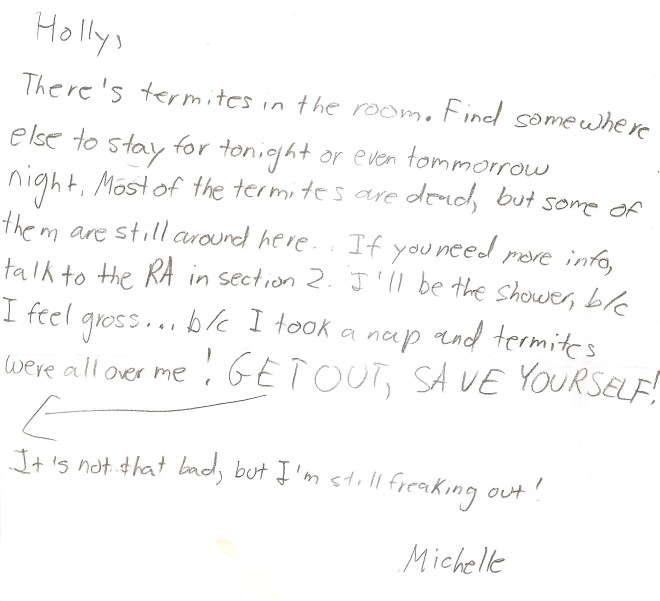 Holly,
There's termites in the room. Find somewhere
else to stay for tonight or even tommorrow
night. Most of the termites are dead, but some of
them are still around here... If you need more info,
talk to the RA in section 2. I'll be the shower, b/c
I feel gross... b/c I took a nap and termites
were all over me! GET OUT, SAVE YOURSELF!
It's not that bad, but I'm still freaking out!
Michelle